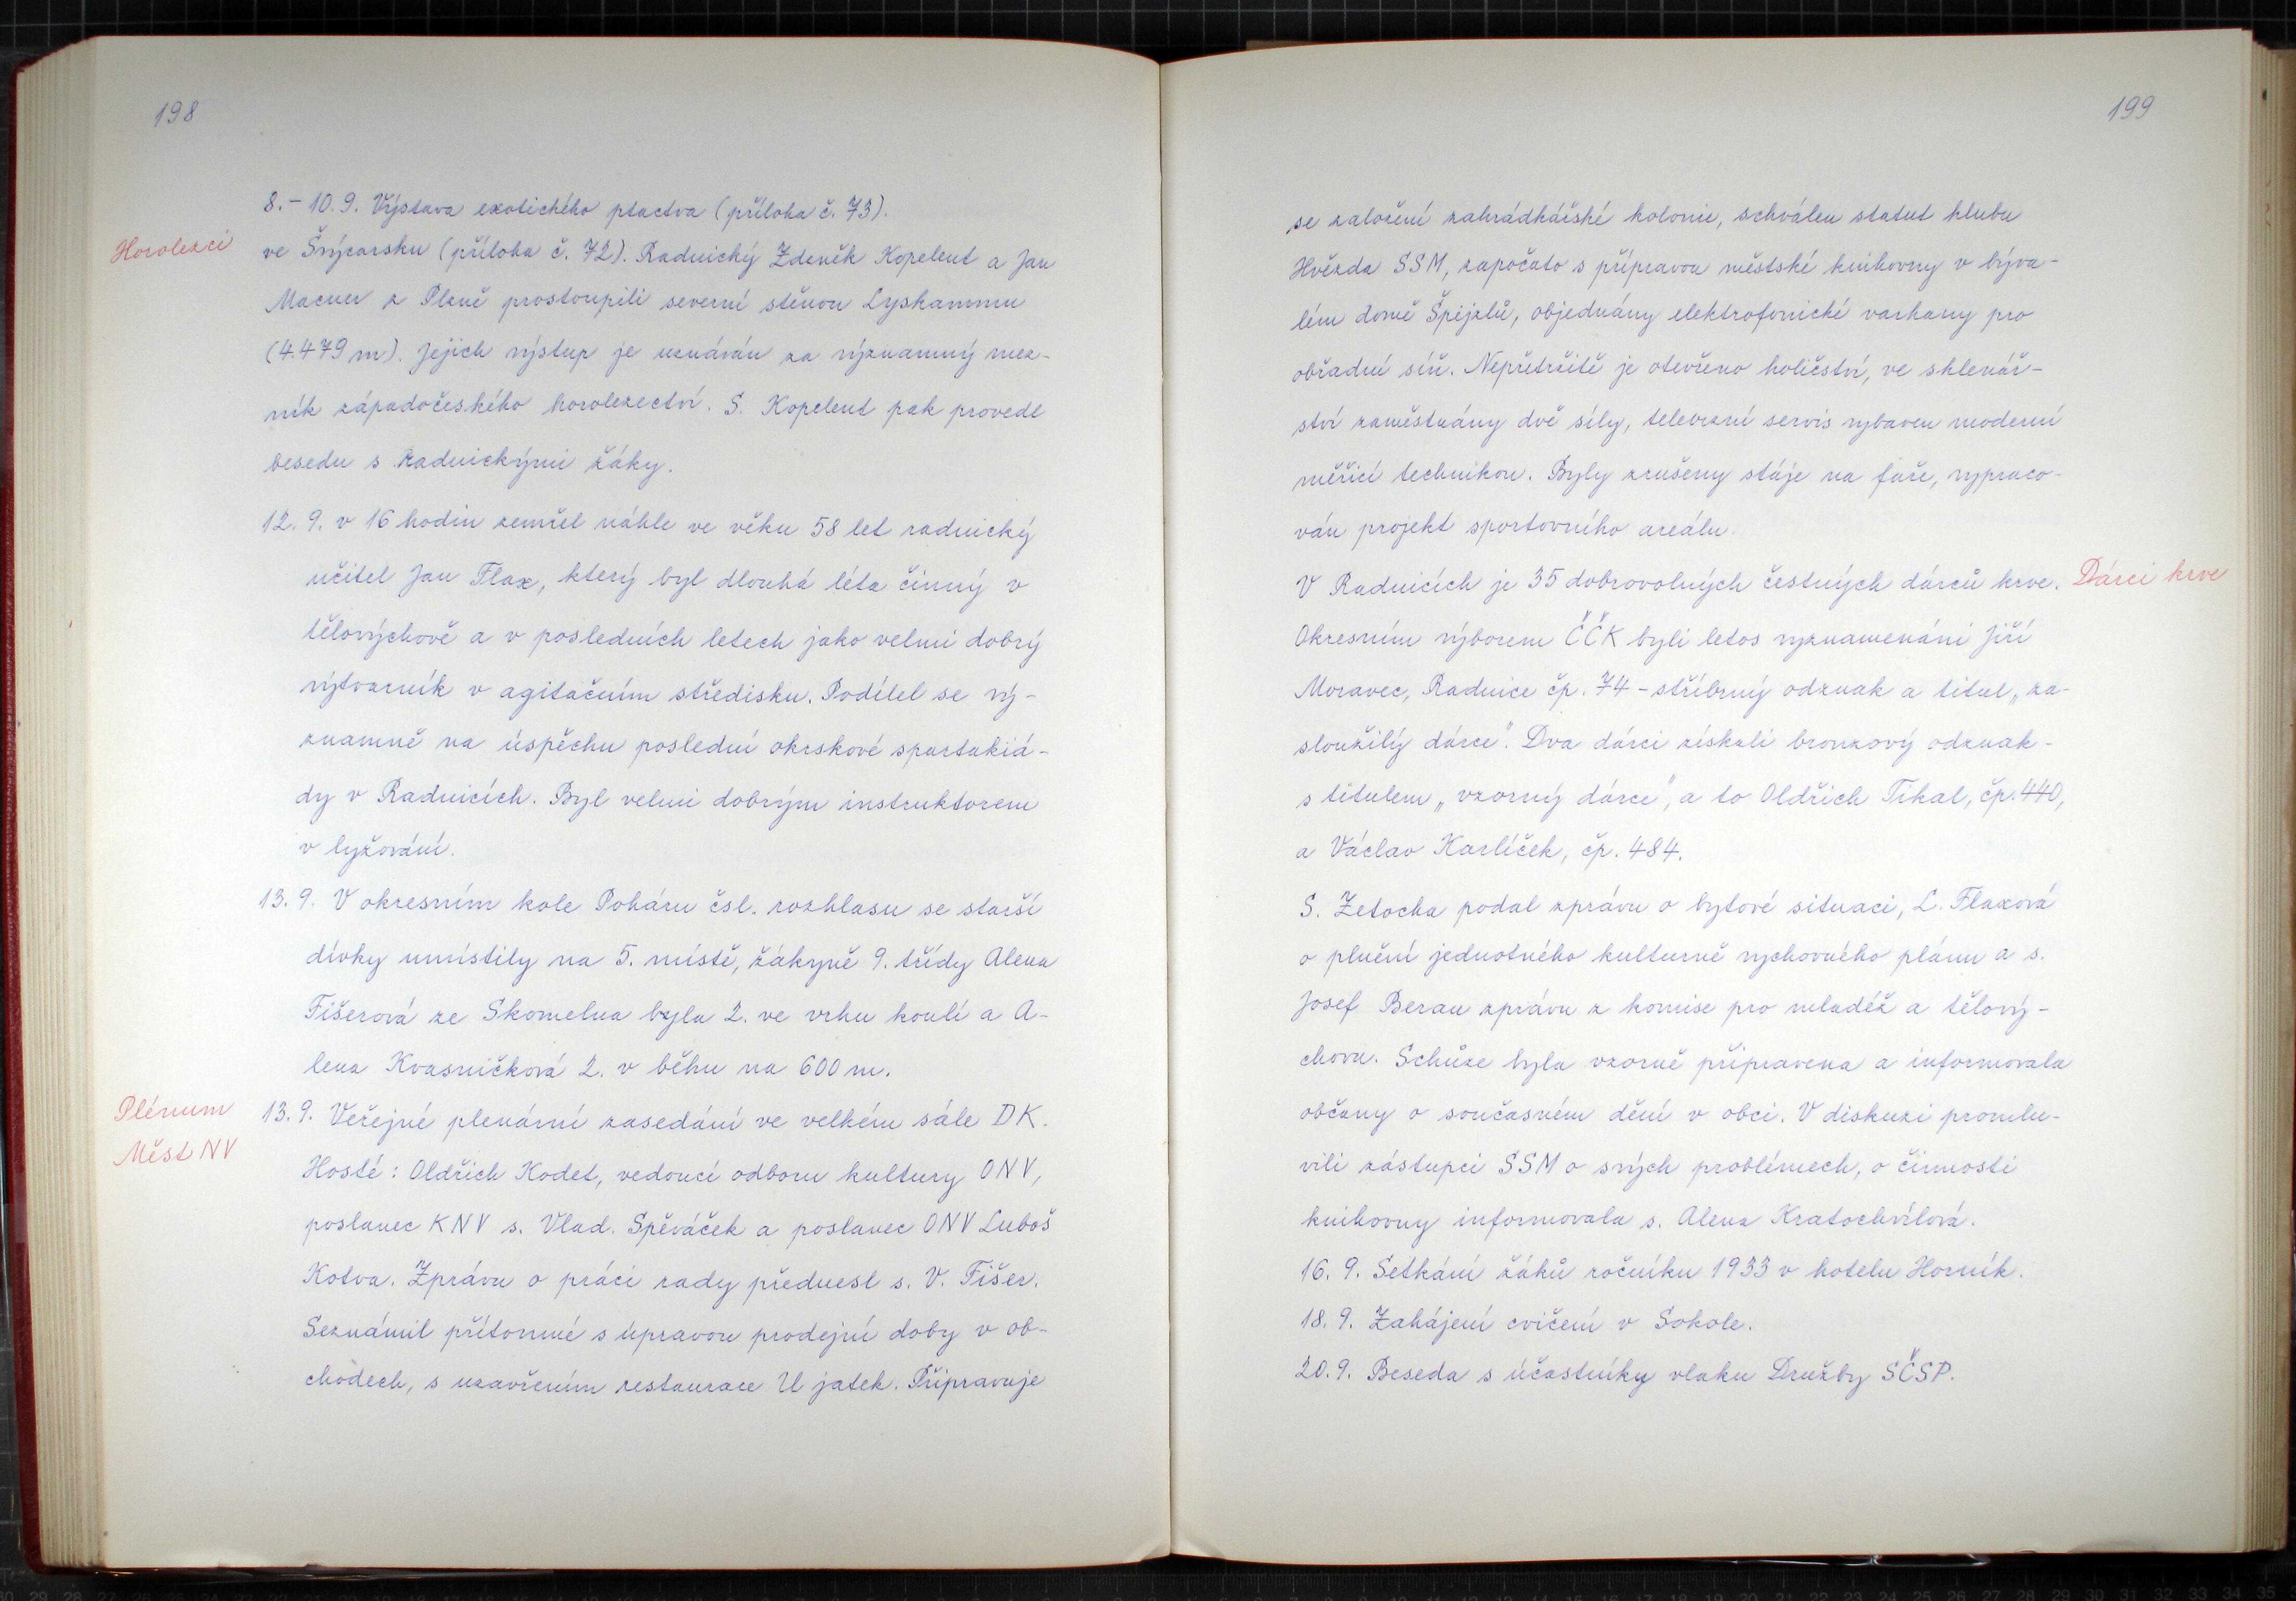 198
8.-10.9. Výstava exotického ptactva (příloha č. 73).
Horolezci
ve Švýcarsku (příloha č. 72). Radnický Zdeněk Kopelent a Jan
Macner z Plzně prostoupili severní stěnou Lyskammu
(4.479 m). Jejich výstup je uznáván za významný mez-
ník západočeského horolezectví. S. Kopelent pak provedl
besedu s radnickými žáky.
12. 9. v 16 hodin zemřel náhle ve věku 58 let radnický
učitel Jan Flax, který byl dlouhá léta činný v
tělovýchově a v posledních letech jako velmi dobrý
výtvarník v agitačním středisku. Podílel se vý-
znamně na úspěchu poslední okrskové spartakiá-
dy v Radnicích. Byl velmi dobrým instruktorem
v lyžování.
13. 9. V okresním kole Poháru čsl. rozhlasu se starší
dívky umístily na 5. místě, žákyně 9. třídy Alena
Fišerová ze Skomelna byla 2. ve vrhu koulí a A-
lena Kvasničková 2. v běhu na 600 m.
Plénum
Měst NV
13. 9. Veřejné plenární zasedání ve velkém sále DK.
Hosté: Oldřich Kodet, vedoucí odboru kultury ONV,
poslanec KNV s. Vlad. Spěváček a poslanec ONV Luboš
Kotva. Zprávu o práci rady přednesl s. V. Fišer.
Seznámil přítomné s úpravou prodejní doby v ob-
chodech, s uzavřením restaurace U jatek. Připravuje
199
se založení zahrádkářské kolonie, schválen statut klubu
Hvězda SSM, započato s přípravou městské knihovny v býva-
lém domě Špejzlů, objednány elektrofonické varhany pro
obřadní síň. Nepřetržitě je otevřeno holičství, ve sklenář-
ství zaměstnány dvě síly, televizní servis vybaven moderní
měřicí technikou. Byly zrušeny stáje na faře, vypraco-
ván projekt sportovního areálu.
V Radnicích je 35 dobrovolných čestných dárců krve.
Dárci krve
Okresním výborem ČČK byli letos vyznamenáni Jiří
Moravec, Radnice čp. 74 - stříbrný odznak a titul „za-
sloužilý dárce". Dva dárci získali bronzový odznak -
s titulem „vzorný dárce", a to Oldřich Tikal, čp. 440,
a Václav Karlíček, čp. 484.
S. Zetocha podal zprávu o bytové situaci, L. Flaxová
o plnění jednotného kulturně vychovného plánu a s.
Josef Beran zprávu z komise pro mládež a tělový-
chovu. Schůze byla vzorně připravena a informovala
občany o současném dění v obci. V diskuzi promlu-
vili zástupci SSM o svých problémech, o činnosti
knihovny informovala s. Alena Kratochvílová.
16. 9. Setkání žáků ročníku 1933 v hotelu Horník.
18. 9. Zahájení cvičení v Sokole.
20. 9. Beseda s účastníky vlaku Družby SČSP.